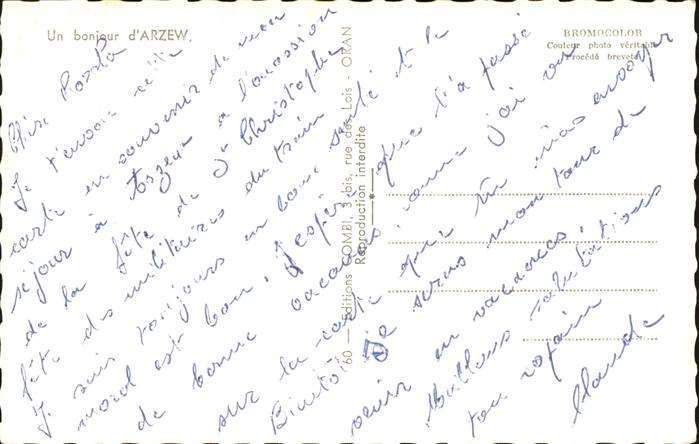 Un bonjour d'ARZEW.
BROMOCOLOR
Couleur photo véritable
Procédé breveté
60 — Editions COMBI, 3 bis, rue des Lois - ORAN
Reproduction interdite
Je t'envoie cette
carte en souvenir de mon
séjour à Arzew à l'occasion
de la fête de St Christophe
fête des militaires du train
Je suis toujours en bonne santé et le
moral est bon, j'espère que tu a passé
de bonne vacances comme j'ai vu
sur la carte que tu m'as envoyer
Bientôt Je serais mon tour de
venir en vacances,
Meilleurs salutations
ton copain
Claude